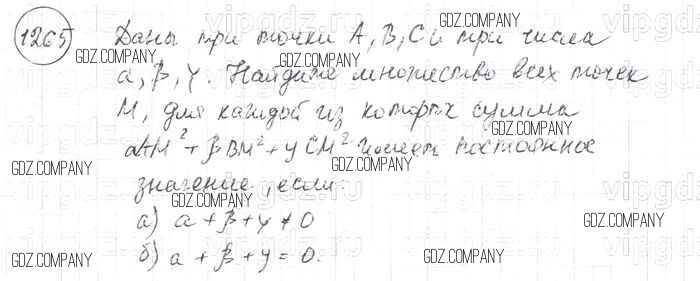 1265 Даны три точки A, B, C и три числа
α, β, γ. Найдите множество всех точек
M, для каждой из которых сумма
αAM² + βBM² + γCM² имеет постоянное
значение, если:
а) α + β + γ ≠ 0
б) α + β + γ = 0.
GDZ.COMPANY
GDZ.COMPANY
GDZ.COMPANY
GDZ.COMPANY
GDZ.COMPANY
GDZ.COMPANY
GDZ.COMPANY
GDZ.COMPANY
GDZ.COMPANY
GDZ.COMPANY
GDZ.COMPANY